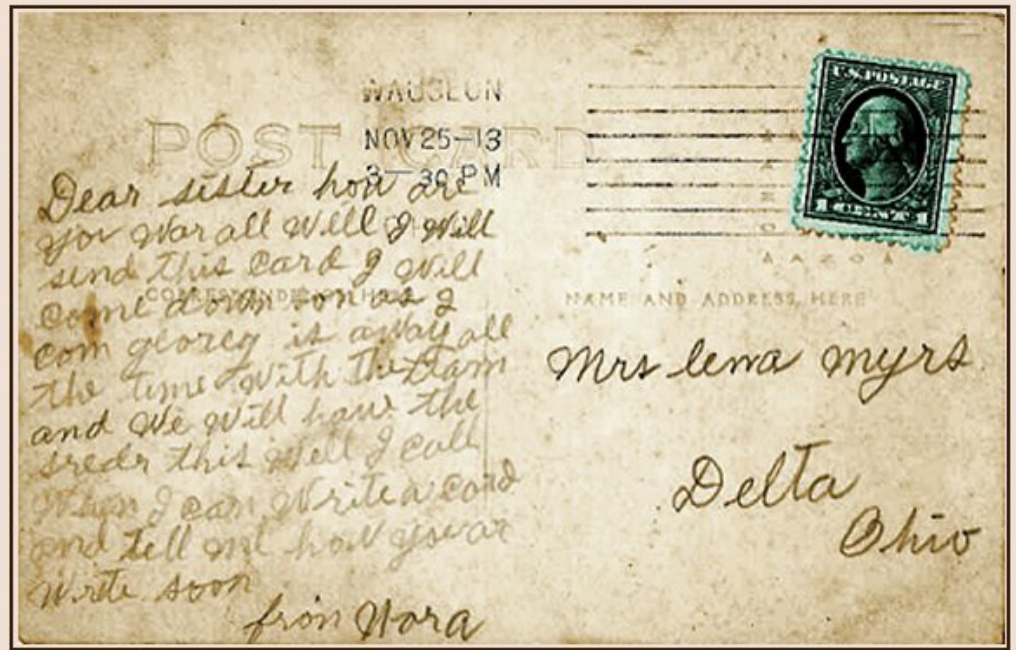 WAUSEON
NOV 25-13
3-30 PM
POST CARD
U.S. POSTAGE
1 CENT 1
CORRESPONDENCE HERE
NAME AND ADDRESS HERE
Dear sister how are
you war all Well I Will
send this card I Will
come down son as I
com is away all
the time With the
and We Will have the
this Well I call
When I can Write a card
and tell me how you ar
Write soon
from Nora
Mrs lena myrs
Delta
Ohio